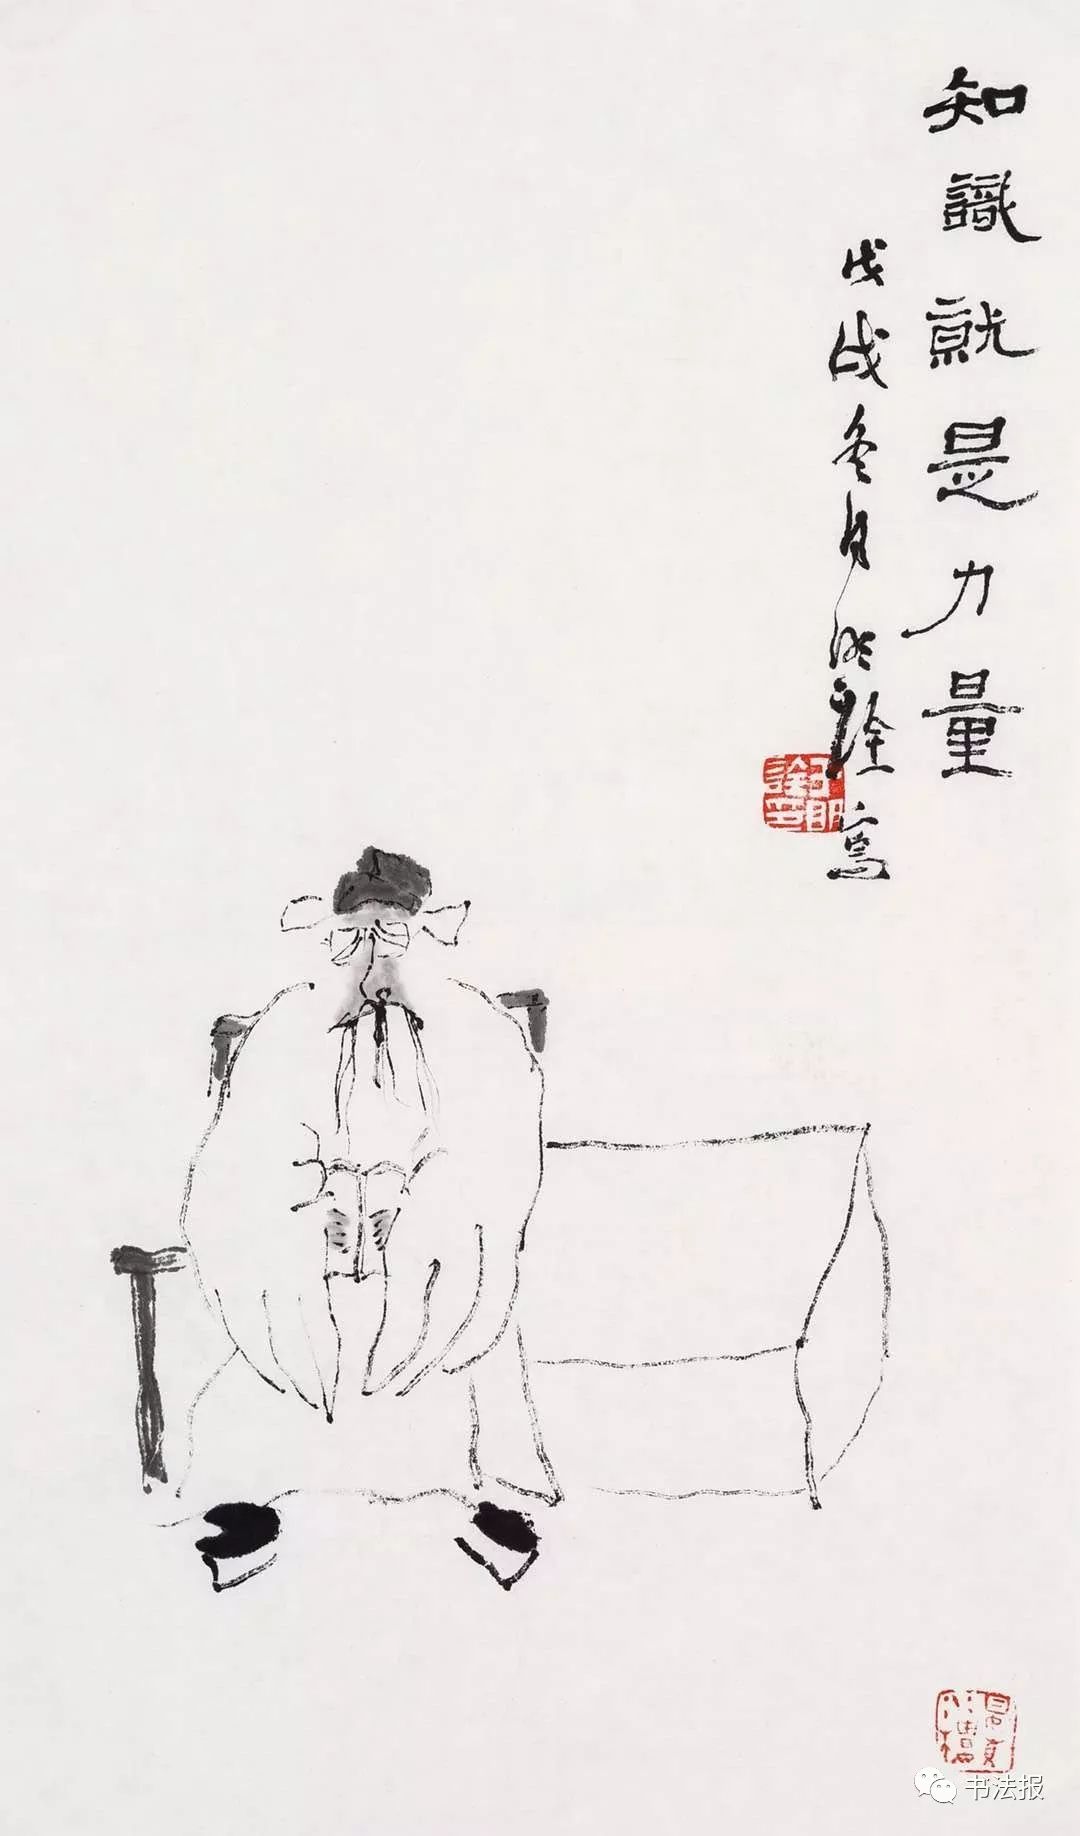 知識就是力量
戊戌冬月明詮寫
书法报